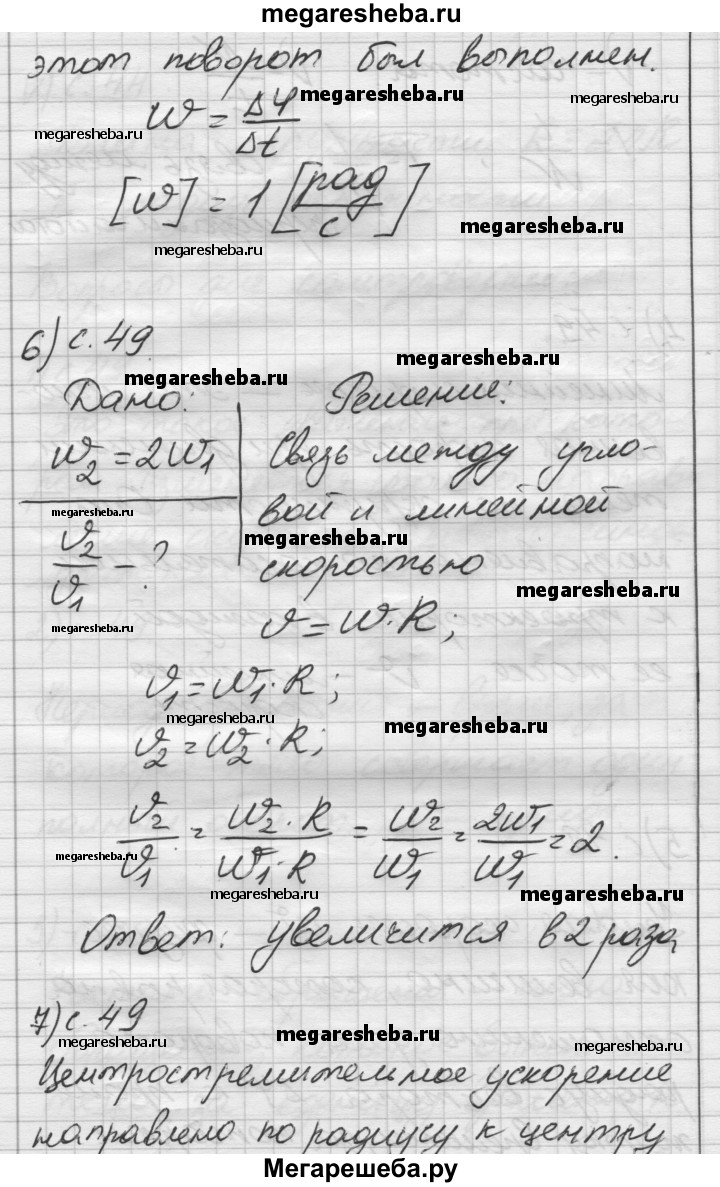 megaresheba.ru
этот поворот был выполнен.
megaresheba.ru
megaresheba.ru
w = Δφ/Δt
[w] = 1 [рад/с]
megaresheba.ru
megaresheba.ru
6) с. 49
megaresheba.ru
megaresheba.ru
Дано: Решение:
w₂ = 2w₁ Связь между угло-
megaresheba.ru
вой и линейной
megaresheba.ru
v₂/v₁ - ? скоростью
megaresheba.ru
megaresheba.ru
v = w · R;
v₁ = w₁ · R;
megaresheba.ru
megaresheba.ru
v₂ = w₂ · R;
v₂/v₁ = w₂ · R/w₁ · R = w₂/w₁ = 2w₁/w₁ = 2.
megaresheba.ru
megaresheba.ru
megaresheba.ru
Ответ: увеличится в 2 раза
7) с. 49
megaresheba.ru
megaresheba.ru
megaresheba.ru
Центростремительное ускорение
направлено по радиусу к центру
Мегарешеба.ру